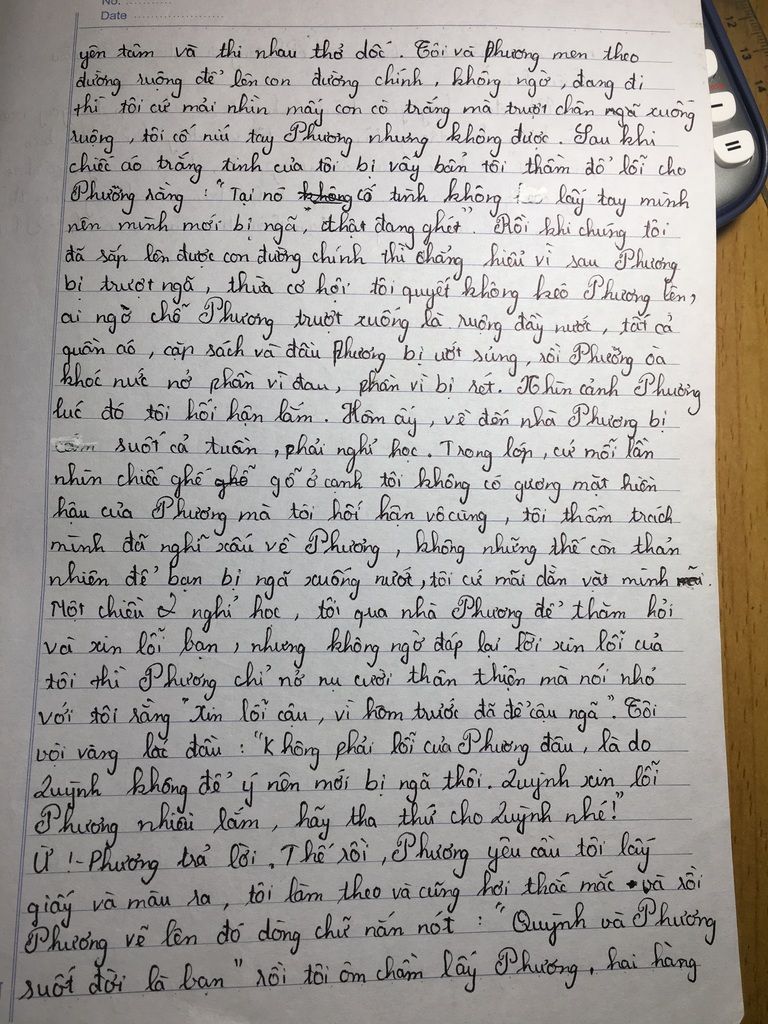 No. ............
Date ........................
yên tâm và thi nhau thở dốc. Tôi và Phương men theo
đường ruộng để lên con đường chính, không ngờ, đang đi
thì tôi cứ mải nhìn mấy con cò trắng mà trượt chân ngã xuống
ruộng, tôi cố níu tay Phương nhưng không được. Sau khi
chiếc áo trắng tinh của tôi bị vấy bẩn tôi thầm đổ lỗi cho
Phưỡng rằng : "Tại nó không cố tình không lấy tay mình
nên mình mới bị ngã, thật đang ghét". Rồi khi chúng tôi
đã sắp lên được con đường chính thì chẳng hiểu vì sau Phương
bị trượt ngã, thừa cơ hội tôi quyết không kéo Phương lên,
ai ngờ chỗ Phương trượt xuống là ruộng đầy nước, tất cả
quần áo, cặp sách và đầu Phương bị ướt sủng, rồi Phưỡng òa
khóc nức nở phần vì đau, phần vì bị rét. Nhìn cảnh Phương
lúc đó tôi hối hận lắm. Hôm ấy, về đến nhà Phương bị
suốt cả tuần, phải nghỉ học. Trong lớp, cứ mỗi lần
nhìn chiếc ghế ghỗ gỗ ở cạnh tôi không có gương mặt hiền
hậu của Phương mà tôi hối hận vô cùng, tôi thầm trách
mình đã nghĩ xấu về Phương, không những thế còn thản
nhiên để bạn bị ngã xuống nước, tôi cứ mãi dằn vặt mình
Một chiều 2 nghỉ học, tôi qua nhà Phương để thăm hỏi
và xin lỗi bạn, nhưng không ngờ đáp lại lời xin lỗi của
tôi thì Phương chỉ nở nụ cười thân thiện mà nói nhỏ
với tôi rằng "Xin lỗi cậu, vì hôm trước đã để cậu ngã". Tôi
vội vàng lắc đầu : "Không phải lỗi của Phương đâu, là do
Quỳnh không để ý nên mới bị ngã thôi. Quỳnh xin lỗi
Phương nhiều lắm, hãy tha thứ cho Quỳnh nhé!"
Ừ !- Phương trả lời. Thế rồi, Phương yêu cầu tôi lấy
giấy và màu ra, tôi làm theo và cũng hơi thắc mắc và rồi
Phương vẽ lên đó dòng chữ nắn nót : "Quỳnh và Phương
suốt đời là bạn" rồi tôi ôm chầm lấy Phương, hai hàng
12
13
14